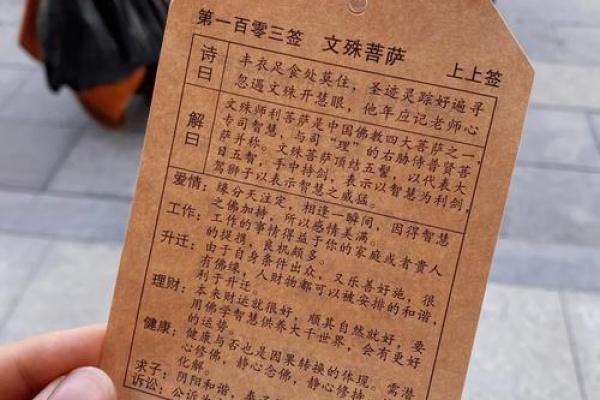 第一百零三签 文殊菩萨 上上签
诗曰
丰衣足食处莫住，圣迹灵踪好遍寻
忽遇文殊开慧眼，他年应记老师心
解曰
文殊师利菩萨是中国佛教四大菩萨之一，
专司智慧，与司“理”的右胁侍普贤菩
萨并称。文殊菩萨顶结五髻，以代表大
日五智，手中持剑，表示以智慧为利剑，
驾狮子以表示智慧之威猛。
爱情：缘分天注定，相逢一瞬间，因得智慧
之佛加持，所以感情美满。
工作：工作的事情得益于你的家庭或者贵人
的提携，良机颇多。
升迁：由于自身条件出众，又乐善好施，很
有佛缘，人财物都可以被安排的和谐，
利于升迁。
理财：本来财运就很好，顺其自然就好，要
用佛学智慧供养大千世界，会有更好
的运势。
健康：健康与否也是因果转换的体现。需潜
心修佛，静心念佛，静心修持
化解。
求子：阴阳和谐，
诉讼：公诉